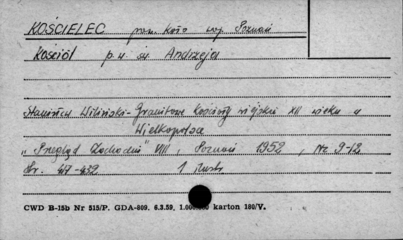 KOŚCIELEC pow. Koło woj. Poznań
Kościół p.w. św. Andrzeja
Wiliński - Granitowe kościoły wiejskie XII wieku w
Wielkopolsce
„Przegląd Zachodni" VIII, Poznań 1952, Nr 9-12
str. 1 ilustr.
CWD B-15b Nr 515/P. GDA-809. 6.3.59. karton 180/V.